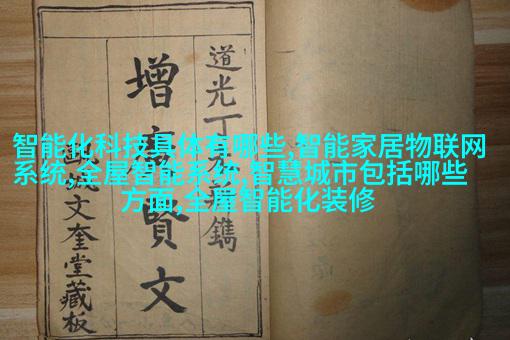 智能化科技具体有哪些,智能家居物联网
系统,全屋智能系统,智慧城市包括哪些
方面,全屋智能化装修
道光丁鐫
增廣賢文
文奎堂藏板